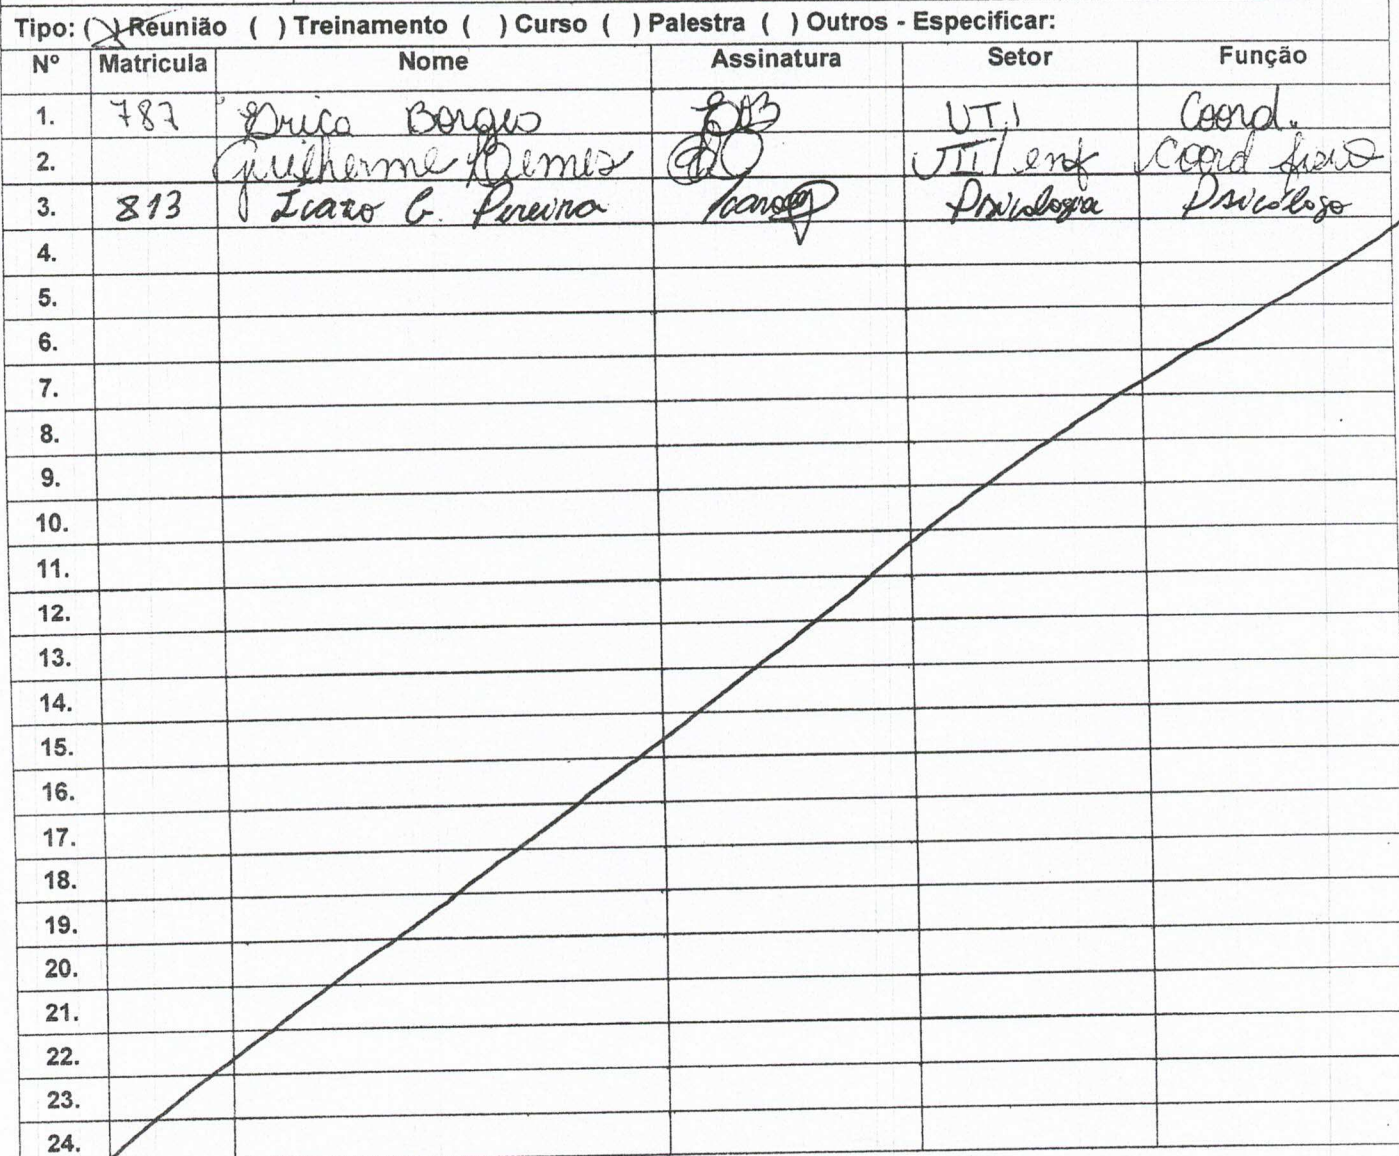 Tipo: (X) Reunião ( ) Treinamento ( ) Curso ( ) Palestra ( ) Outros - Especificar:
Nº Matricula Nome Assinatura Setor Função
1. 787 Erica Borges EAB UTI Coord.
2. Guilherme UTI/enf Coord fisio
3. 813 Icaro G. Pereira Icaro Psicologia Psicólogo
4.
5.
6.
7.
8.
9.
10.
11.
12.
13.
14.
15.
16.
17.
18.
19.
20.
21.
22.
23.
24.